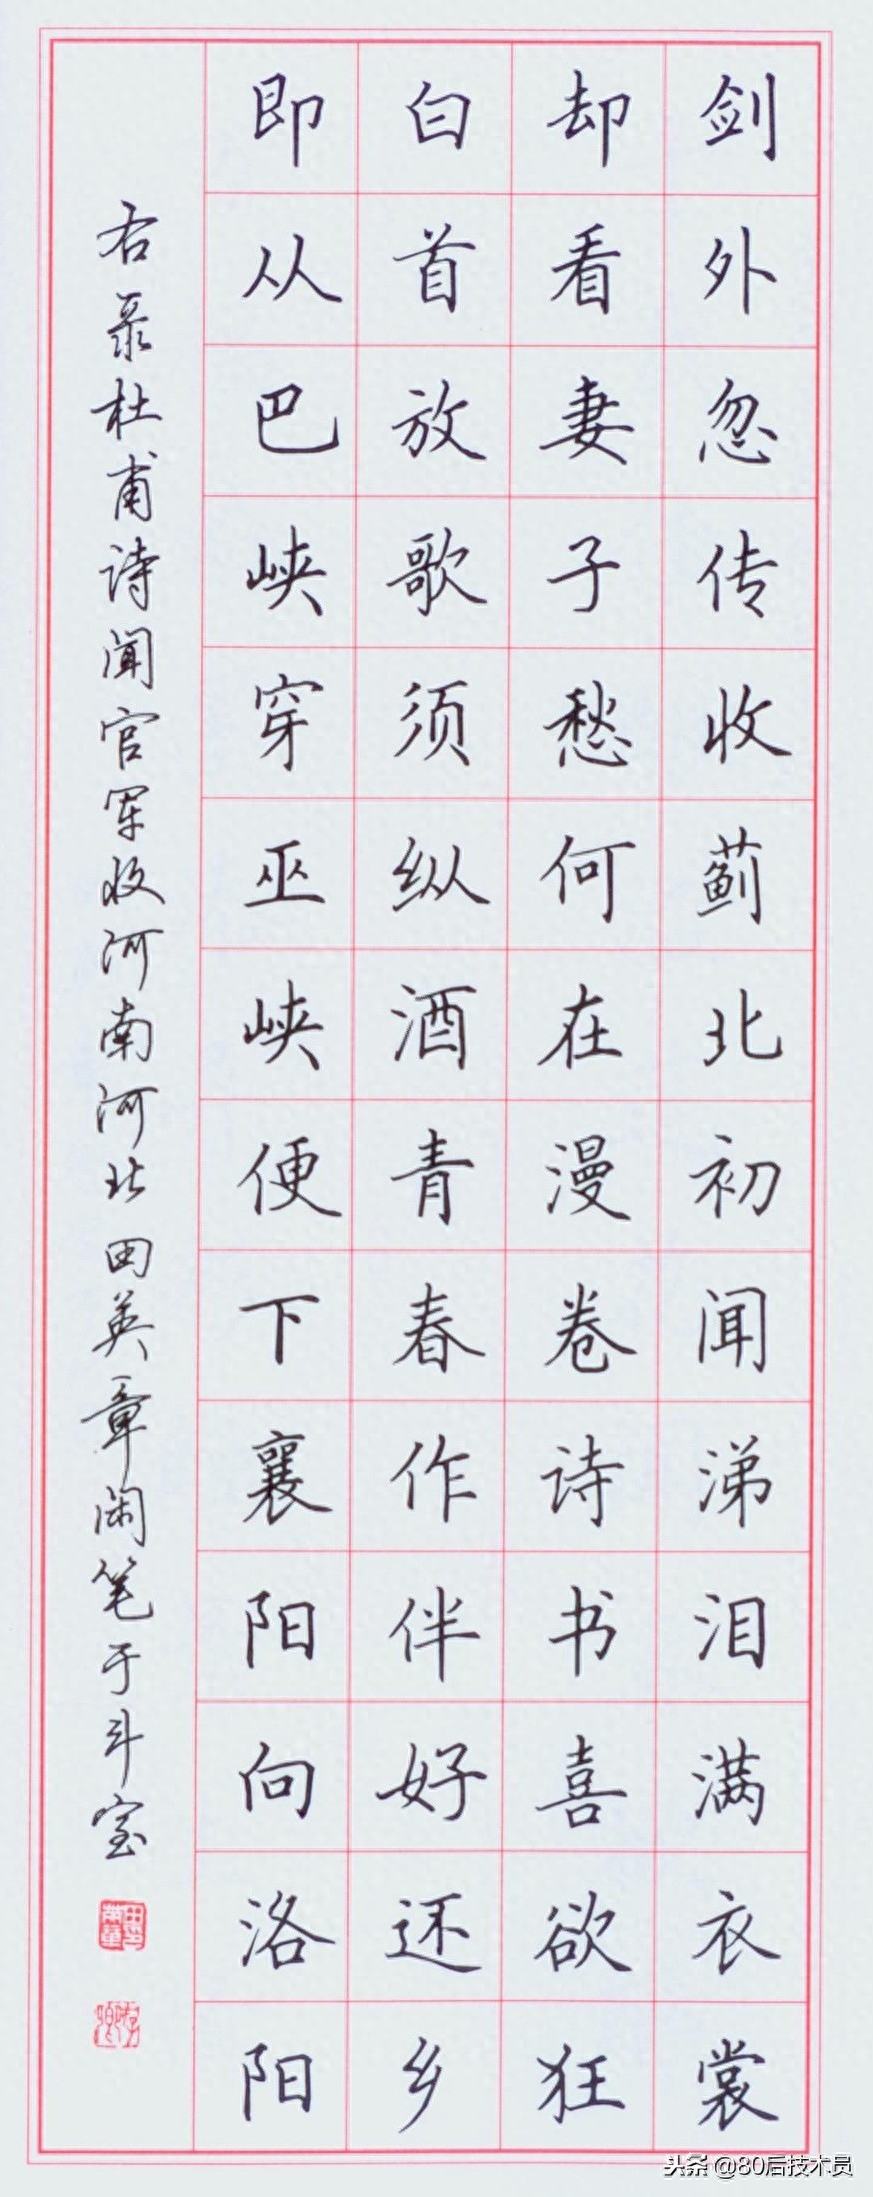 剑外忽传收蓟北初闻涕泪满衣裳
却看妻子愁何在漫卷诗书喜欲狂
白首放歌须纵酒青春作伴好还乡
即从巴峡穿巫峡便下襄阳向洛阳
右录杜甫诗闻官军收河南河北 田英章闲笔于斗室
田英章印
头条 @80后技术员